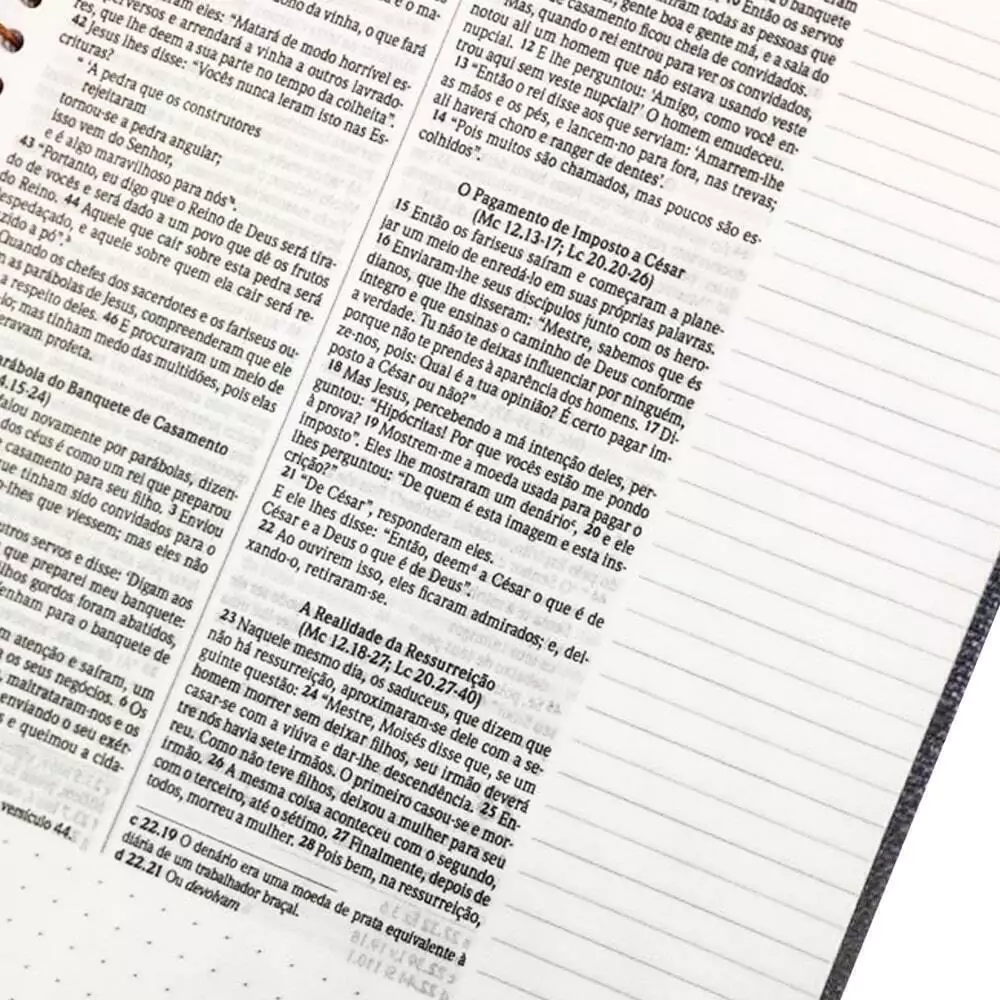 ono da vinha, o que fará
eram eles: “Matará de modo horrível es-
perversos e arrendará a vinha a outros lavrado-
res, que lhe deem a sua parte no tempo da colheita”.
42 Jesus lhes disse: “Vocês nunca leram isto nas Es-
crituras?
“ ‘A pedra que os construtores
rejeitaram
tornou-se a pedra angular;
isso vem do Senhor,
e é algo maravilhoso para nós’.
43 “Portanto, eu digo que o Reino de Deus será tira-
do de vocês e será dado a um povo que dê os frutos
do Reino. 44 Aquele que cair sobre esta pedra será
despedaçado, e aquele sobre quem ela cair será re-
zido a pó”.
Quando os chefes dos sacerdotes e os fariseus ou-
m as parábolas de Jesus, compreenderam que ele
a respeito deles. 46 E procuravam um meio de
-lo; mas tinham medo das multidões, pois elas
eravam profeta.
arábola do Banquete de Casamento
4.15-24)
falou novamente por parábolas, dizen-
dos céus é como um rei que preparou
e casamento para seu filho. 3 Enviou
que tinham sido convidados para o
o-lhes que viessem; mas eles não
utros servos e disse: ‘Digam aos
que preparei meu banquete:
ilhos gordos foram abatidos,
Venham para o banquete de
m atenção e saíram, um
a os seus negócios. 6 Os
, maltrataram-nos e os
enviando o seu exér-
s e queimou a cida-
versículo 44.
o banquete
10 Então os servos
juntaram todas as pessoas que
gente boa e gente má, e a sala do
de casamento ficou cheia de convidados.
Mas, quando o rei entrou para ver os convidados,
notou ali um homem que não estava usando veste
nupcial. 12 E lhe perguntou: ‘Amigo, como você en-
trou aqui sem veste nupcial?’ O homem emudeceu.
13 “Então o rei disse aos que serviam: ‘Amarrem-lhe
as mãos e os pés, e lancem-no para fora, nas trevas;
ali haverá choro e ranger de dentes’.
14 “Pois muitos são chamados, mas poucos são es-
colhidos”.
O Pagamento de Imposto a César
(Mc 12.13-17; Lc 20.20-26)
15 Então os fariseus saíram e começaram a plane-
jar um meio de enredá-lo em suas próprias palavras.
16 Enviaram-lhe seus discípulos junto com os hero-
dianos, que lhe disseram: “Mestre, sabemos que és
íntegro e que ensinas o caminho de Deus conforme
a verdade. Tu não te deixas influenciar por ninguém,
porque não te prendes à aparência dos homens. 17 Di-
ze-nos, pois: Qual é a tua opinião? É certo pagar im-
posto a César ou não?”
18 Mas Jesus, percebendo a má intenção deles, per-
guntou: “Hipócritas! Por que vocês estão me pondo
à prova? 19 Mostrem-me a moeda usada para pagar o
imposto”. Eles lhe mostraram um denárioᶜ, 20 e ele
lhes perguntou: “De quem é esta imagem e esta ins-
crição?”
21 “De César”, responderam eles.
E ele lhes disse: “Então, deemᵈ a César o que é de
César e a Deus o que é de Deus”.
22 Ao ouvirem isso, eles ficaram admirados; e, dei-
xando-o, retiraram-se.
A Realidade da Ressurreição
(Mc 12.18-27; Lc 20.27-40)
23 Naquele mesmo dia, os saduceus, que dizem que
não há ressurreição, aproximaram-se dele com a se-
guinte questão: 24 “Mestre, Moisés disse que, se um
homem morrer sem deixar filhos, seu irmão deverá
casar-se com a viúva e dar-lhe descendência. 25 En-
tre nós havia sete irmãos. O primeiro casou-se e mor-
reu. Como não teve filhos, deixou a mulher para seu
irmão. 26 A mesma coisa aconteceu com o segundo,
com o terceiro, até o sétimo. 27 Finalmente, depois de
todos, morreu a mulher. 28 Pois bem, na ressurreição,
c 22.19 O denário era uma moeda de prata equivalente à
diária de um trabalhador braçal.
d 22.21 Ou devolvam